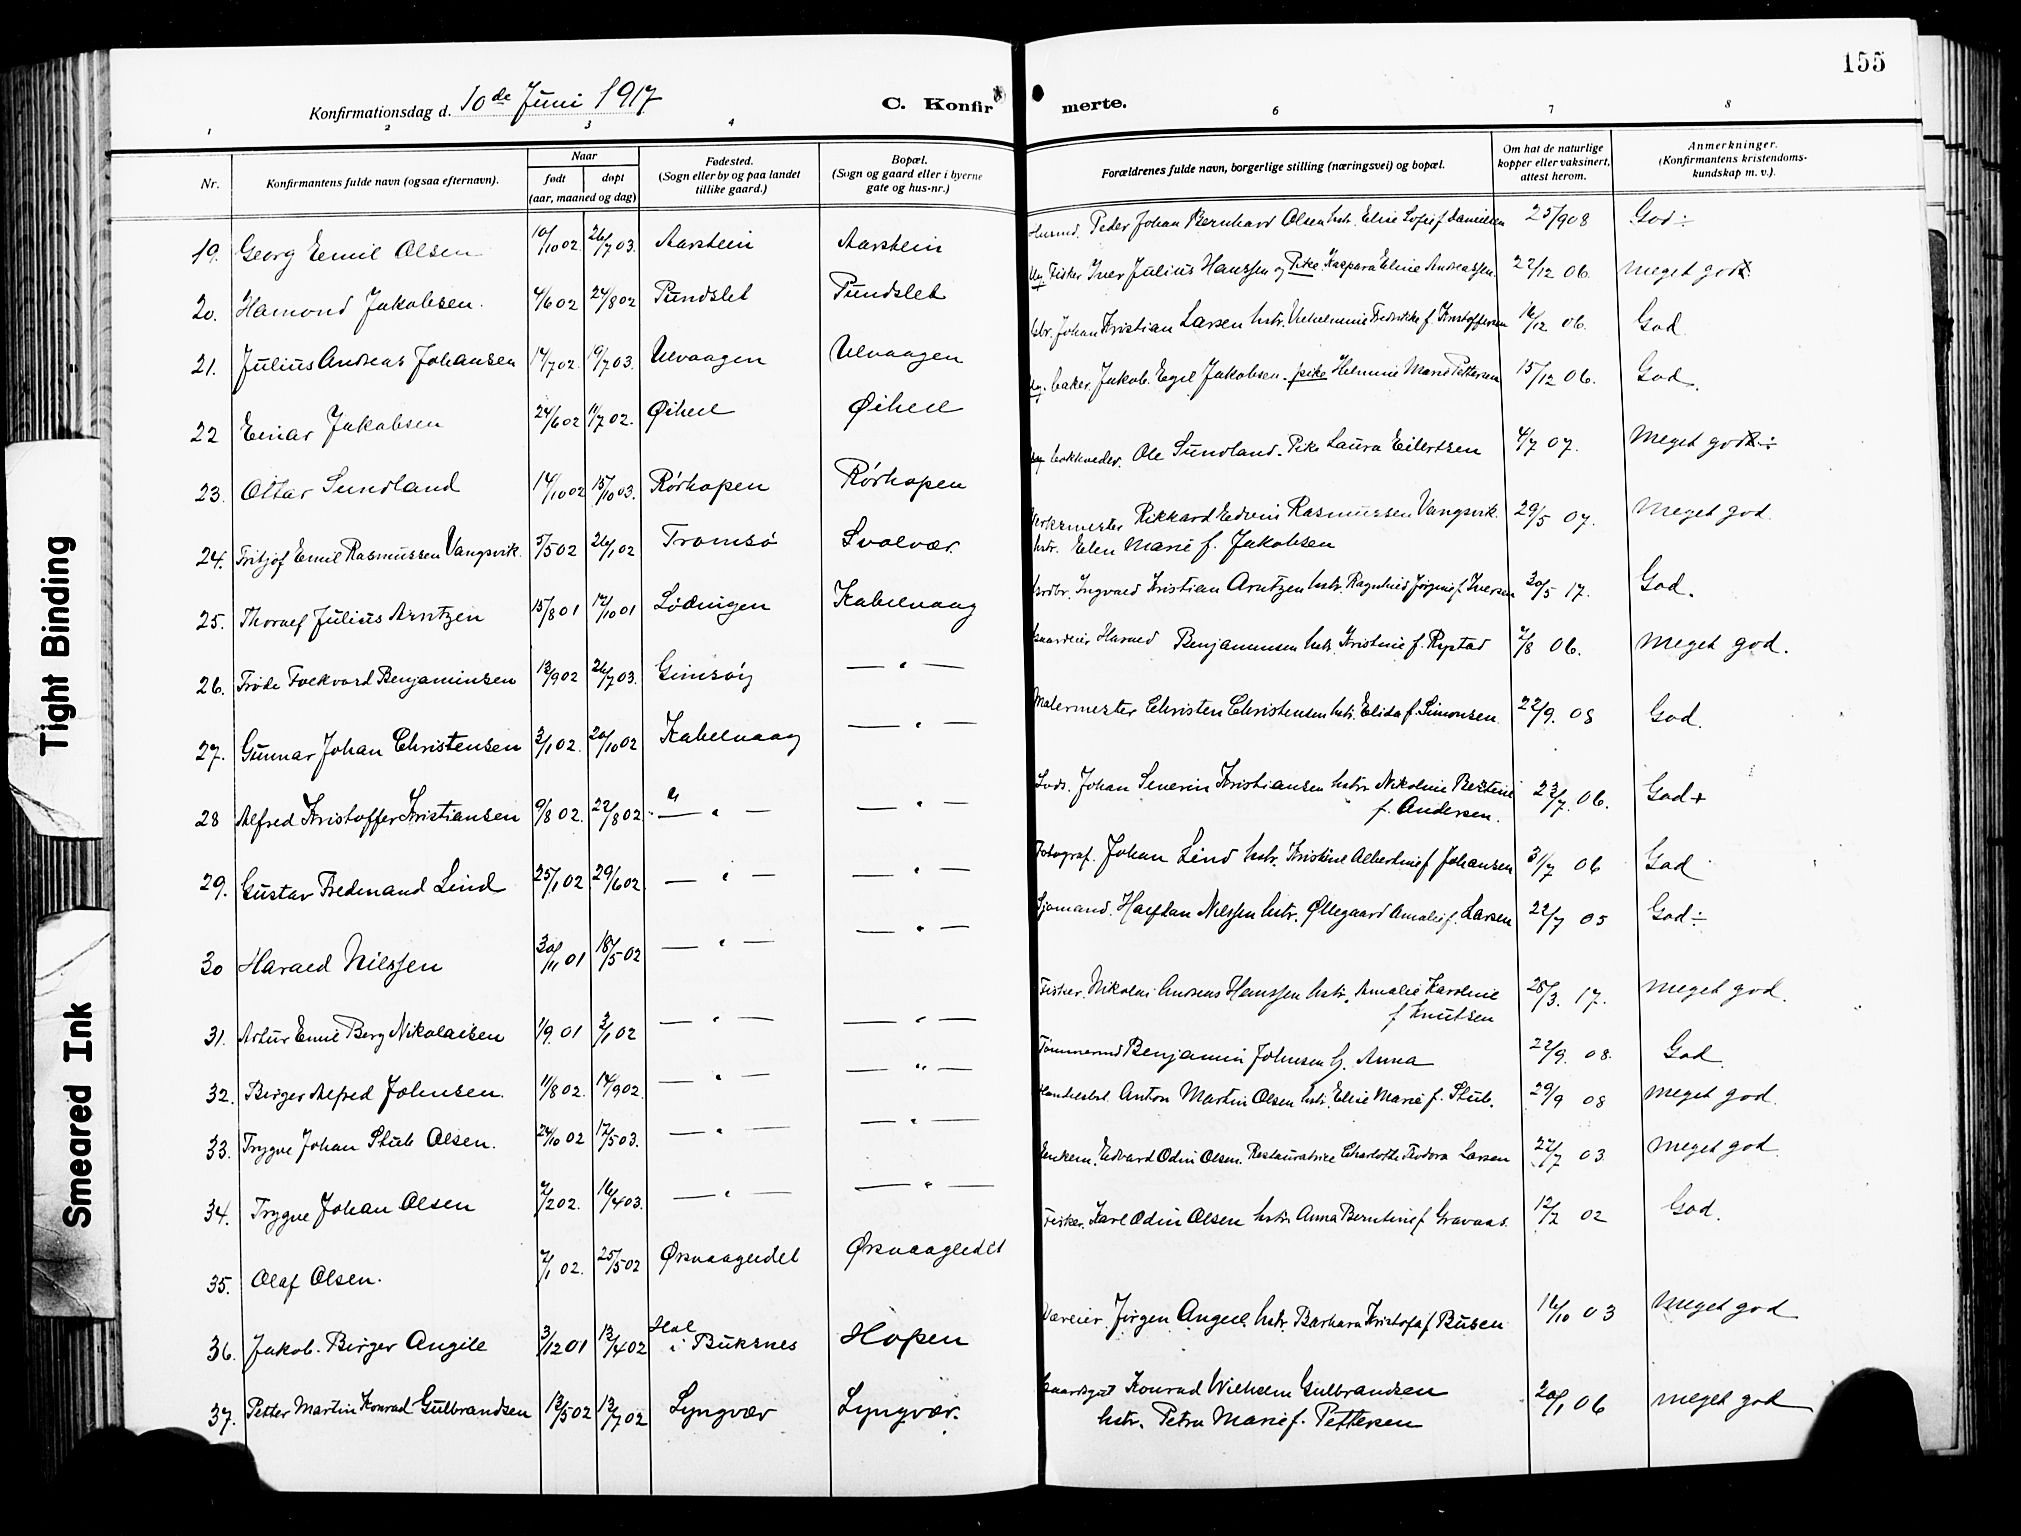 155
Konfirmationsdag d. 10de Juni 1917 C. Konfirmerte.
1 2 3 4 6 7 8
Nr.
Konfirmantens fulde navn (ogsaa efternavn).
Naar
født døpt
(aar, maaned og dag)
Fødested.
(Sogn eller by og paa landet
tillike gaard.)
Bopæl.
(Sogn og gaard eller i byerne
gate og hus-nr.)
Forældrenes fulde navn, borgerlige stilling (næringsvei) og bopæl.
Om hat de naturlige
kopper eller vaksinert,
attest herom.
Anmerkninger.
(Konfirmantens kristendoms-
kundskap m. v.).
19. Georg Emil Olsen 10/10 02 26/7 03. Aarstein Aarstein Husmd. Peder Johan Bernhard Olsen hstr. Elise Sofie f Danielsen 25/9 08 God ÷
20. Hamond Jakobsen. 4/6 02 24/8 02 Pundslet Pundslet Fisker Iver Julius Hanssen og Pike Kaspara Eline Andreassen. 27/12 06. Meget god
21. Julius Andreas Johansen 14/7 02. 19/7 03. Ulvaagen Ulvaagen Johan Kristian Larsen hstr. Vilhelmine Fredrikke f. Kristoffersen 16/12 06. God
22 Einar Jakobsen 24/6 02 11/7 02. Øihell Øihell baker. Jakob. Egil Jakobsen. pike Helmine Marie Pettersen 15/12 06. God.
23. Ottar Sundland 14/10 02 15/10 03. Rørhopen Rørhopen Ole Sundland. Pike Laura Eilertsen 4/7 07. Meget god ÷
24. Fritjof Emil Rasmussen Vangsvik. 5/5 02 26/1 02 Tromsø Svolvær. Verksmester Rikkard Edvin Rasmussen Vangsvik. 29/5 07. Meget god.
hstr. Elen Marie f. Jakobsen
25. Thoralf Julius Arntzen 15/8 01 17/10 01 Lødingen Kabelvaag Ingvald Kristian Arntzen hstr. Ragnhild Jørgine f. Iversen 30/5 17. God.
26. Frøde Folkvard Benjaminsen 13/9 02 26/7 03. Gimsøy — " — Gaardeier Harald Benjaminsen hstr. Kristine f. Rystad 7/8 06. Meget god.
27. Gunnar Johan Christensen 3/1 02. 20/10 02 Kabelvaag — " — Malermester Christen Christensen hstr. Elida f. Simonsen 22/9. 08 God.
28 Alfred Kristoffer Kristiansen 9/8 02. 22/8 02 — " — — " — Lods. Johan Severin Kristiansen hstr Nikoline Bertine 23/7. 06. God +
f. Andersen.
29. Gustav Ferdinand Lind 25/1 02 29/6 02. — " — — " — Fotograf. Johan Lind hstr. Kristine Albertine f Johansen 31/7 06 God
30 Harald Nilssen 30/11 01 18/5 02 — " — — " — Sjømand. Halfdan Nilssen hstr. Øllegaard Amalie f. Larsen 22/7 05 God ÷
31. Artur Emil Berg Nikolaisen 1/9 01 3/1 02 — " — — " — Fisker. Nikolai Andreas Hanssen hstr. Amalie Karoline 25/3. 17. Meget god.
f Knutsen
32. Birger Alfred Johnsen. 11/8 02. 14/9 02. — " — — " — Tømmermd Benjamin Johnsen h. Anna 22/9. 08. God
33. Trygve Johan Stub Olsen. 24/10 02 17/5 03. — " — — " — Anton Martin Olsen hstr. Elise Marie f. Stub. 29/9 08 Meget god.
34. Trygve Johan Olsen 7/2 02. 16/4 03. — " — — " — Enkem. Edvard Odin Olsen. Restauratrice Charlotte Teodora Larsen 27/7 03 Meget god
35. Olaf Olsen. 7/1 02. 25/5 02 Ørsvaageidet Ørsvaageidet Fisker. Karl Odin Olsen hstr Anna Berntine f Gravaas. 12/7 02 God.
36. Jakob. Birger Angell 3/12 01 13/4 02 Hol i Buksnes Hopen Væreier. Jørgen Angell. hstr. Barbara Kristofa f Busen 16/10 03 Meget god
37. Petter Martin Konrad Gulbrandsen 13/5 02 13/7 02 Lyngvær Lyngvær. Konrad Wilhelm Gulbrandsen 20/1 06 meget god
hstr. Petra Marie f. Pettersen
Tight Binding
Smeared Ink